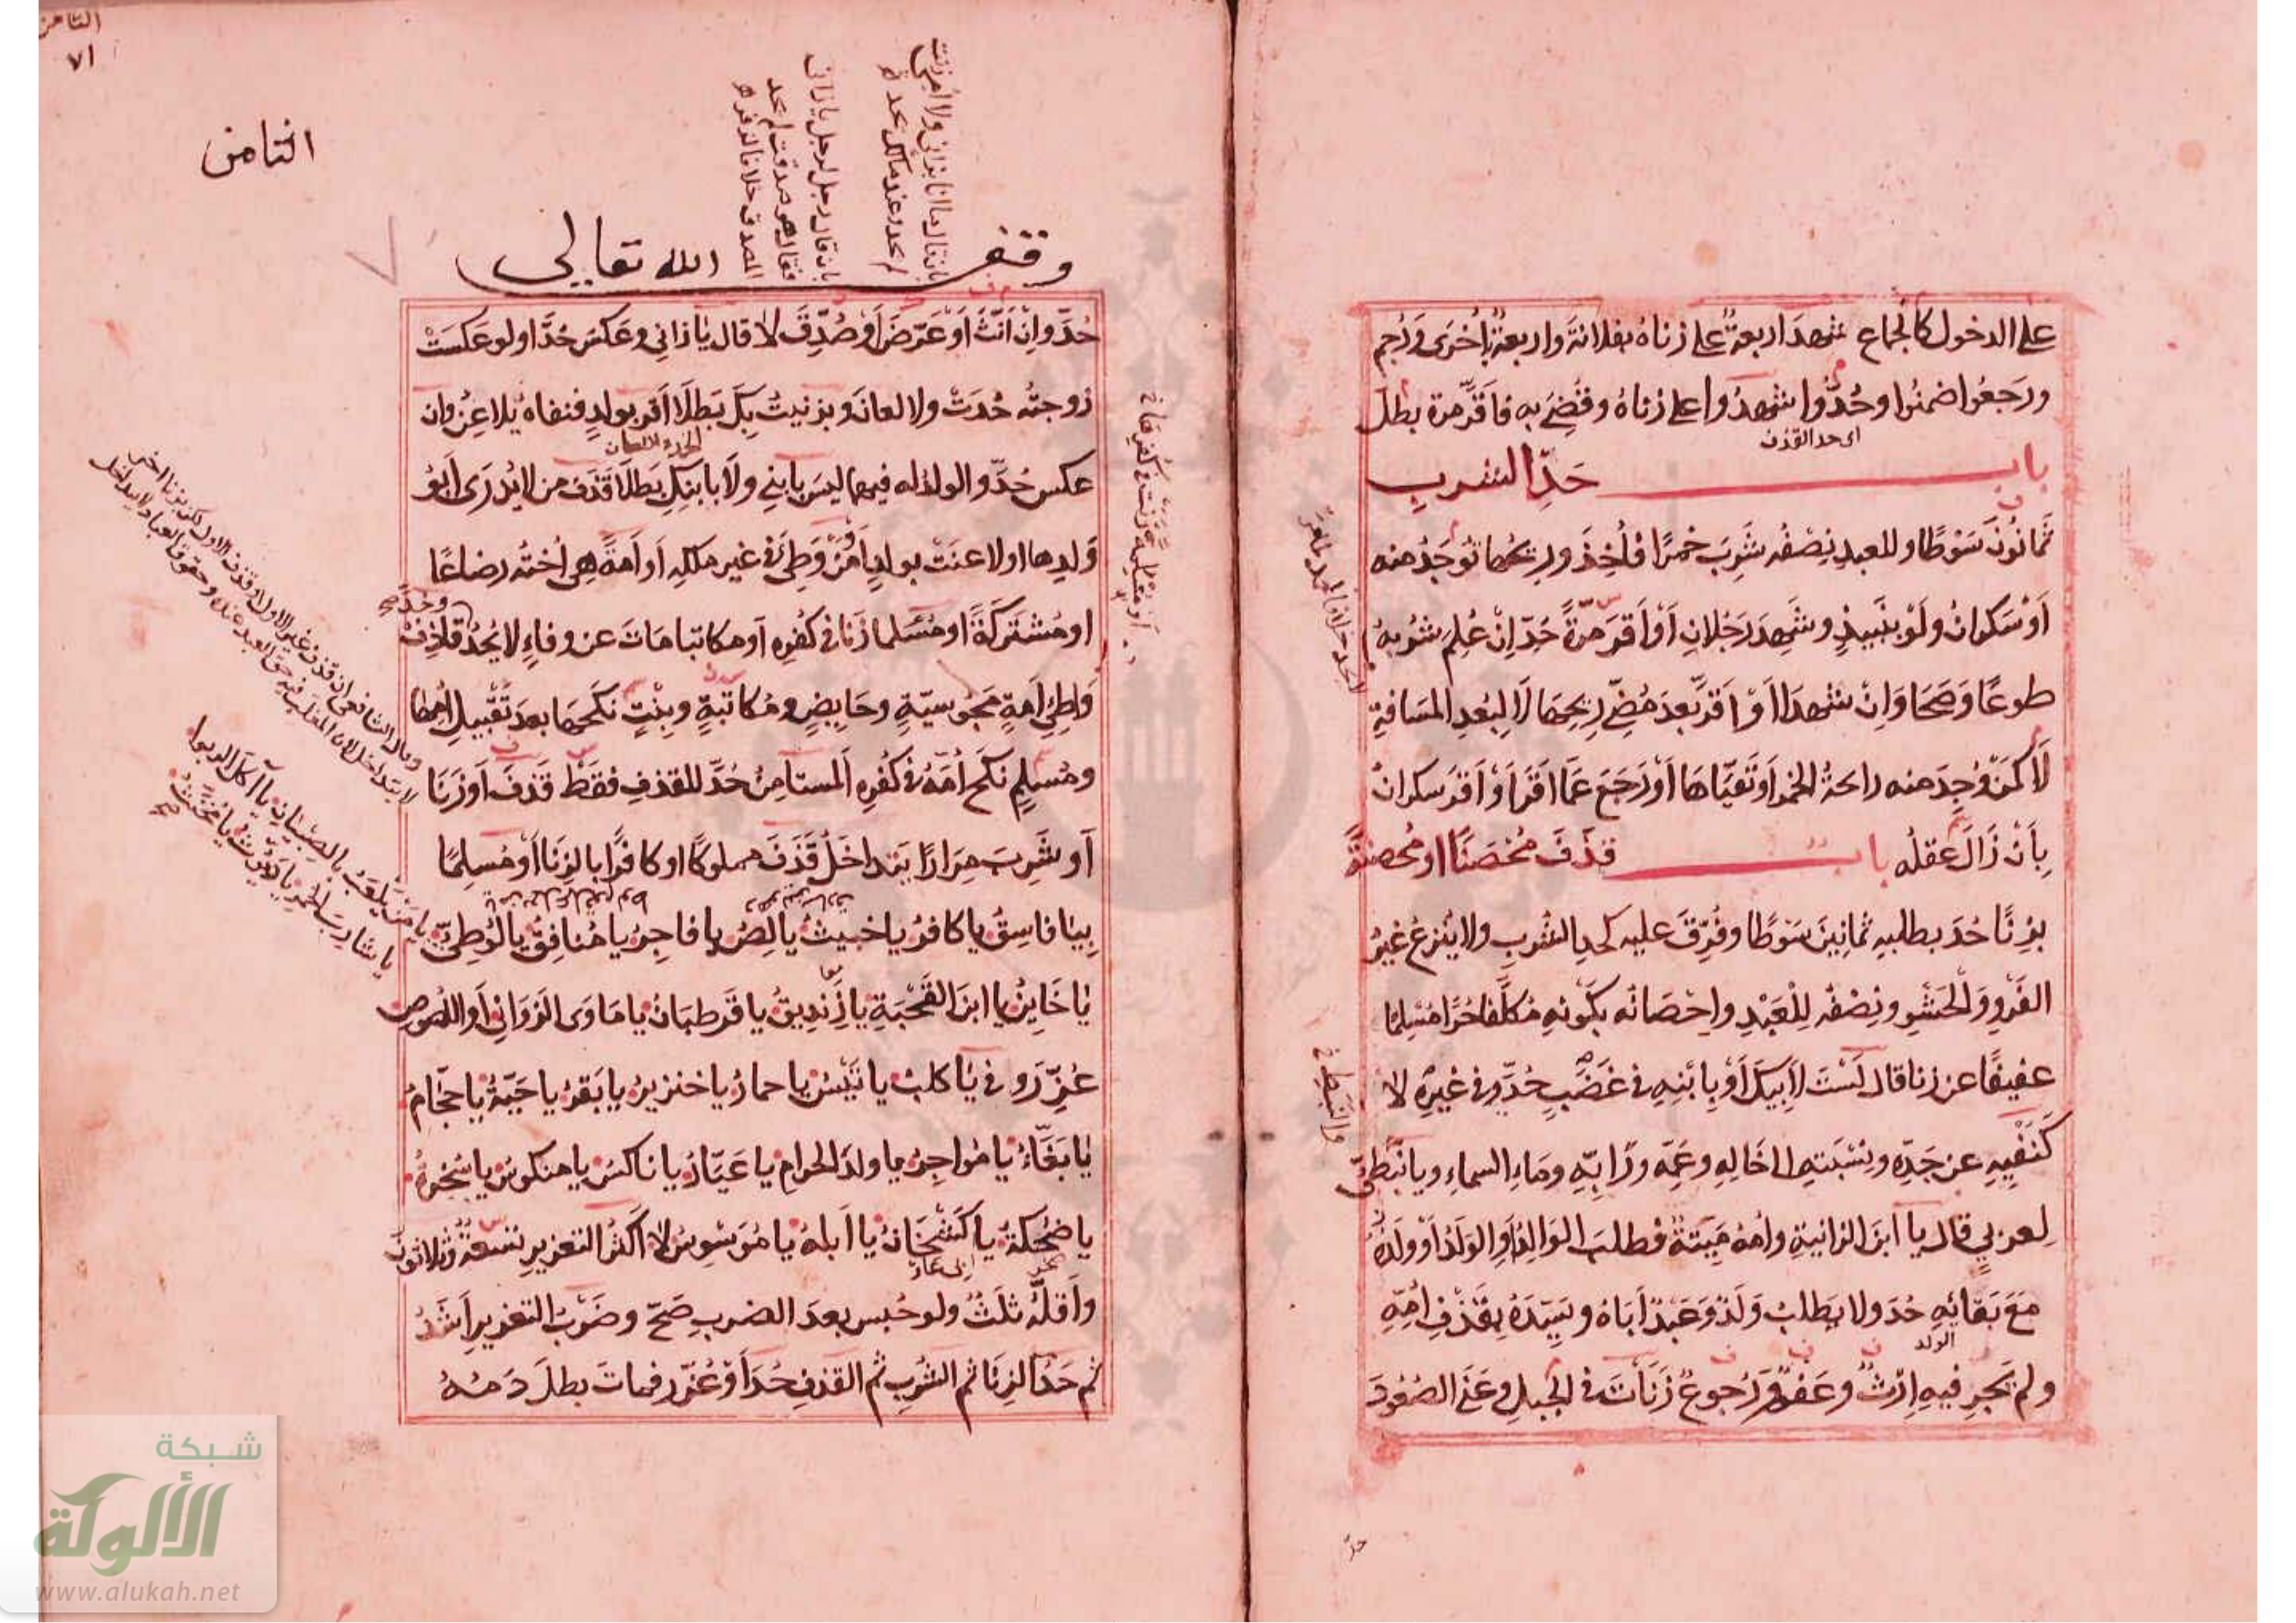 على الدخول كالجماع شهد اربعة على زناه بفلانة واربعة بأخرى ورجم
ورجعوا ضمنوا وحدوا شهدوا على زناه وقضي به فأقر مرة بطل
اى حد القذف
باب حد الشرب
ثمانون سوطا وللعبد نصفه شرب خمرا فأخذ وريحها توجد منه
أو سكران ولو بنبيذ وشهد رجلان أو أقر مرة حد إن علم شربه
طوعا وصحا وإن شهدا أو أقر بعد مضي ريحها لا لبعد المسافة
لا كمن وجد منه رائحة الخمر أو تقيأها أو رجع عما أقر أو أقر سكران
بأن زال عقله باب قذف محصنا او محصنة
بزنا حد بطلبه ثمانين سوطا وفرق عليه كحد الشرب ولا ينزع غير
الفرو والحشو ونصفه للعبد واحصانه بكونه مكلفا حرا مسلما
عفيفا عن زنا قال لست لأبيك أو بابنه في غضب حد وفي غيره لا
كنفيه عن جده ونسبته الى خاله وعمه ورابه وماء السماء ويا نبطي
لعربي قال يا ابن الزانية وأمه ميتة فطلب الوالد أو الولد أو ولده
مع بقائه حد ولا يطلب ولد وعبد أباه وسيده بقذف أمه
الولد
ولم يجر فيه إرث وعفو ورجوع زنأت في الجبل وعنى الصعود
حد
الثامن
٧١
الثامن
وقف الله تعالى
بان قال رجل لرجل يا زاني
فقال هو صدقت لم يحد
المصدق خلافا لزفر
حد وإن أنث أو عرض أو صدق لا قال يا زاني وعكس حدا ولو عكست
زوجته حدت ولا لعان وبزنيت بك بطلا أقر بولد فنفاه يلاعن وان
الحد واللعان
عكس حد والولد له فيهما ليس بابني ولا بابنك بطلا قذف من لا يدرى أبو
ولدها او لاعنت بولد أو من وطئ في غير ملكه أو أمة هي أخته رضاعا
او مشتركة او مسلما زنا في كفره أو مكاتبا مات عن وفاء لا يحد وحد قاذف
واطئ امة مجوسية وحايض ومكاتبة وبنت نكحها بعد تقبيل أمها
ومسلم نكح أمه في كفره المستامن حد للقذف فقط قذف أو زنا
أو شرب مرارا يتداخل قذف مملوكا او كافرا بالزنا أو مسلما
بيا فاسق يا كافر يا خبيث يا لص يا فاجر يا منافق يا لوطي يا من يلعب بالصبيان يا آكل الربوا
يا شارب الخمر يا ديوث يا مخنث صح
يا خاين يا ابن القحبة يا زنديق يا قرطبان يا ماوى الزواني أو اللصوص
عزر وفي يا كلب يا تيس يا حمار يا خنزير يا بقر يا حية يا حجام
يا بغاء يا مواجر يا ولد الحرام يا عيار يا ناكس يا منكوس يا سخرة
يا ضحكة يا كشخان يا أبله يا موسوس لا أكثر التعزير تسعة وثلاثون
وأقله ثلث ولو حبس بعد الضرب صح وضرب التعزير أشد
ثم حد الزنا ثم الشرب ثم القذف حد أو عزر فمات بطل دمه
شبكة
الألوكة
www.alukah.net